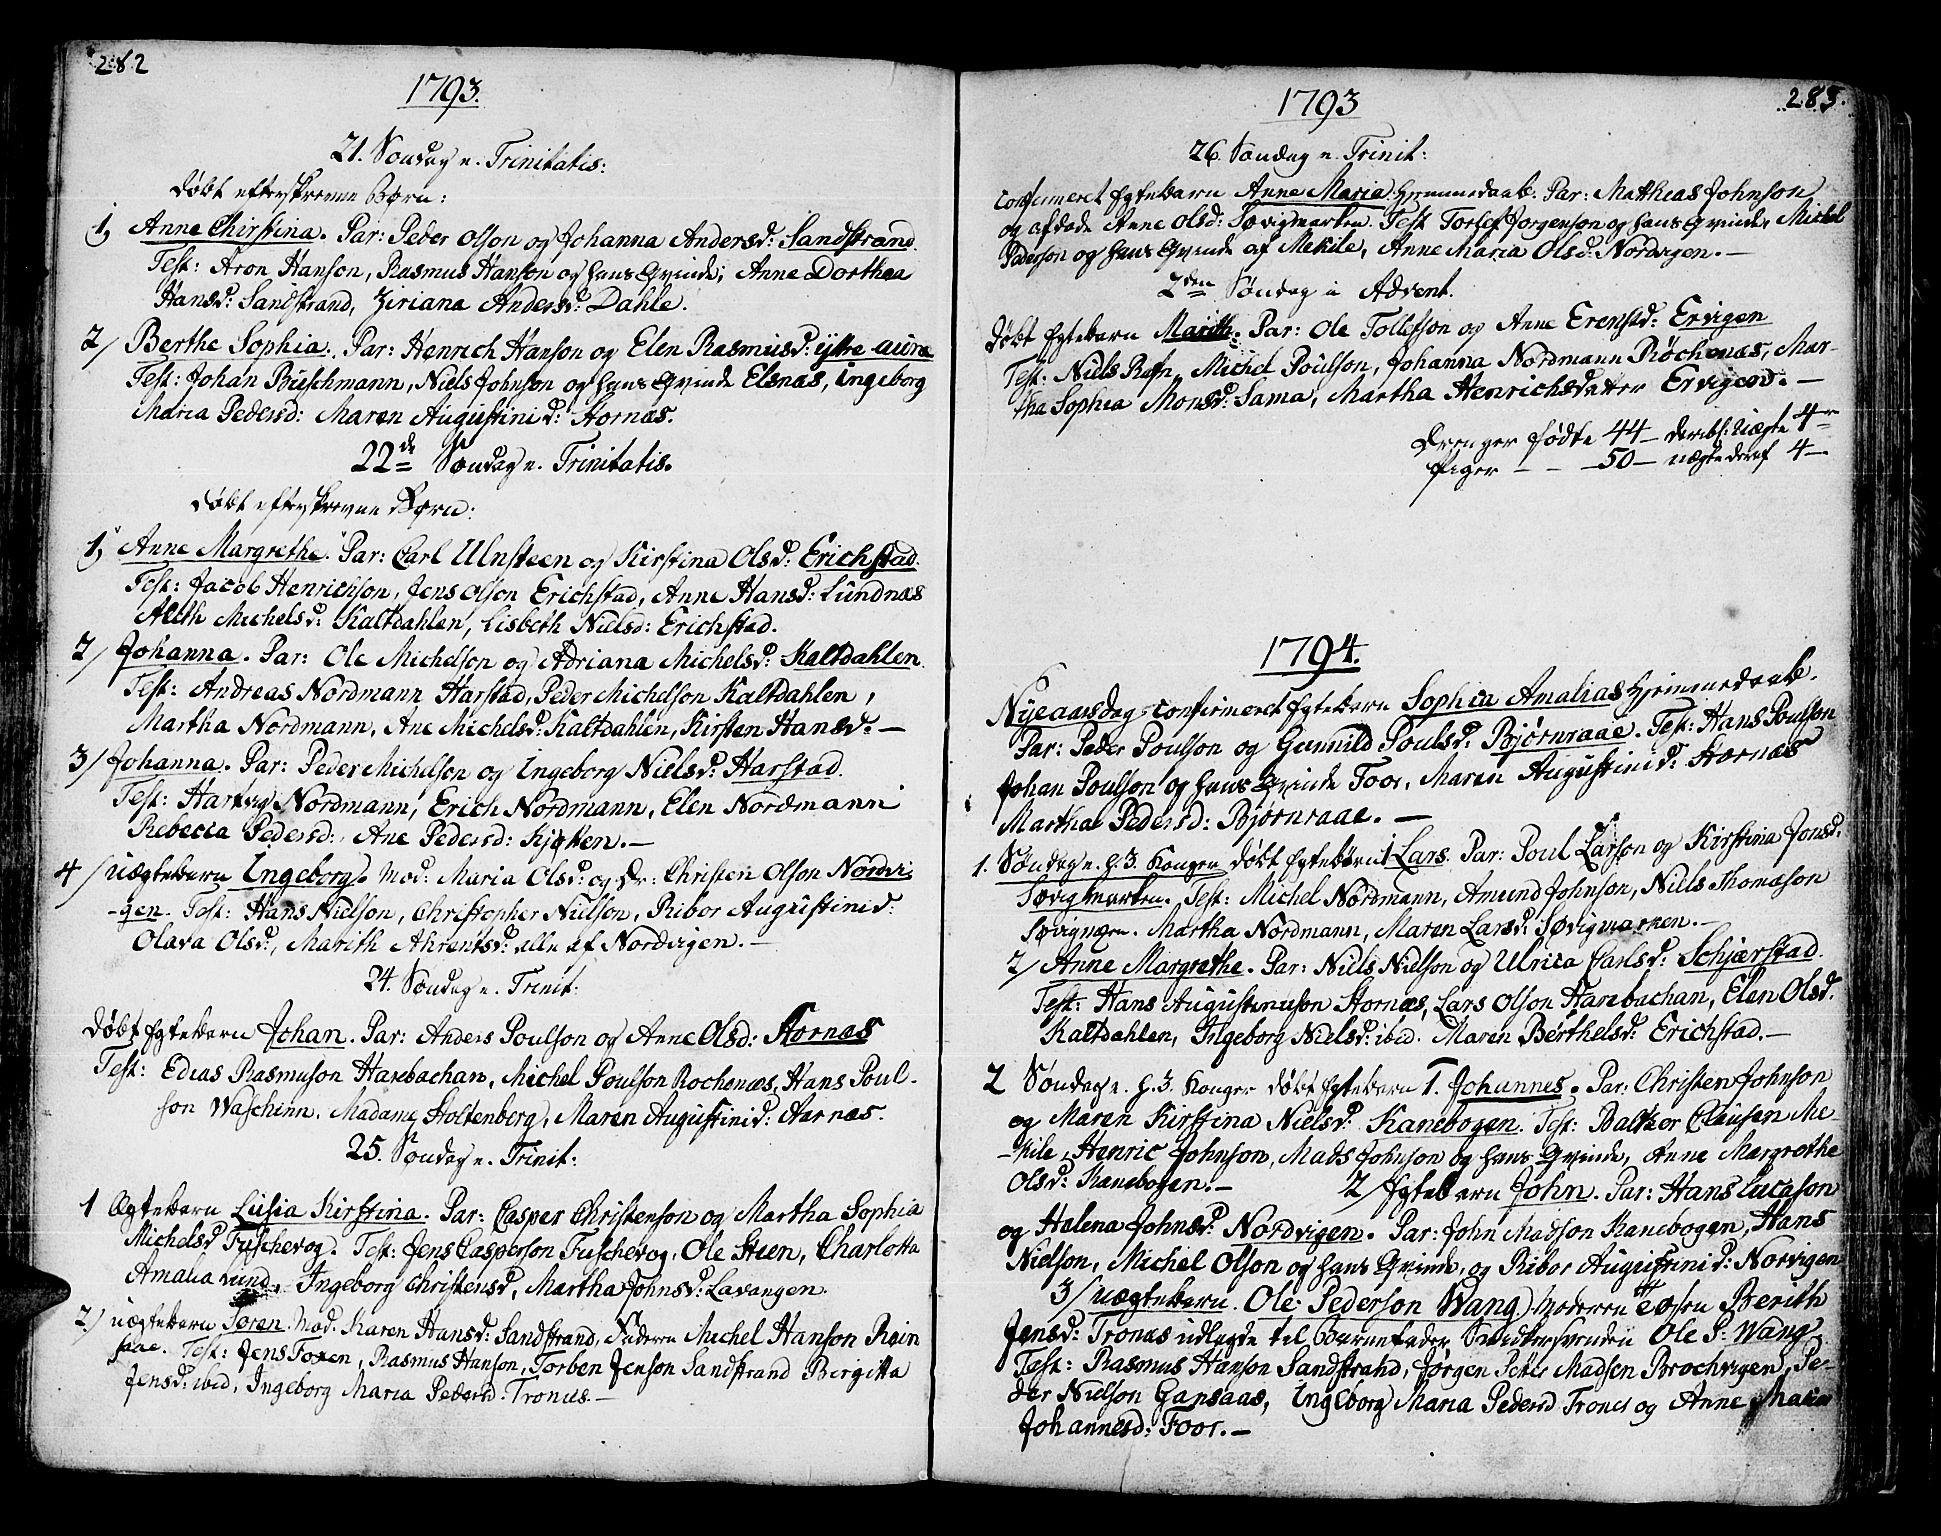 282
1793.
21. Søndag e. Trinitatis:
Døbt efterskrevne Børn:
1, Anne Chirstina. Par: Peder Olson og Johanna Andersd: Sandstrand.
Test: Aron Hanson, Rasmus Hanson og hans Qvinde, Anne Dorthea
Hansd: Sandstrand, Ziriana Andersd: Dahle.
2/ Berthe Sophia. Par: Henrich Hanson og Elen Rasmusd: ytre aune
Test: Johan Buschmann, Niels Johnson og hans Qvinde Elsnæs, Ingeborg
Maria Pedersd: Maren Augustinid: Stornæs.
22de Søndag e. Trinitatis.
Døbt efterskrevne Børn:
1, Anne Margrethe. Par: Carl Ulnsteen og Kirstina Olsd: Erichstad.
Test: Jacob Henrichson, Jens Olson Erichstad, Anne Hansd: Lundnæs
Michelsd: Kaltdahlen, Lisbeth Nielsd: Erichstad.
2/ Johanna. Par: Ole Michelson og Adriana Michelsd: Kaltdahlen.
Test: Andreas Nordmann Harstad, Peder Michelson Kaltdahlen,
Martha Nordmann, Ane Michelsd: Kaltdahlen, Kirsten Hansd. —
3/ Johanna. Par: Peder Michelson og Ingeborg Nielsd: Harstad.
Test: Hartvig Nordmann, Erich Nordmann, Elen Nordmann
Rebecca Pedersd: Ane Pedersd: Kjøtten. —
4/ Uægtebarn Ingeborg. Mod: Maria Olsd: og Dr: Christen Olson Nordvi
-gen. Test: Hans Nielson, Christopher Nielson, Ribor Augustinid:
Olava Olsd:, Marith Ahrentsd: alle af Nordvigen. —
24. Søndag e. Trinit:
Døbt Egtebarn Johan. Par: Anders Poulson og Anne Olsd: Stornæs
Test: Edias Rasmuson Harebachan, Michel Poulson Rochenæs, Hans Poul-
son Waschinn. Madame Stoltenberg, Maren Augustinid: Aarnæs.
25. Søndag e. Trinit:
1 Ægtebarn Lusia Kirstina. Par: Casper Christenson og Martha Sophia
Michelsd Fuschevog. Test: Jens Casperson Fuschevog, Ole Steen, Charlotta
Amalia Lund, Ingeborg Christensd, Martha Johnsd: Lavangen.
2/ uægtebarn Søren. Mod. Karen Hansd: Sandstrand, Faderen Michel Hanson Rein
saae. Test: Jens Foxen, Rasmus Hanson, Torben Jenson Sandstrand Birgitta
Jensd: ibid, Ingeborg Maria Pedersd. Tronæs. —
283.
1793
26. Søndag e. Trinit:
Confirmeret Egtebarn Anne Maria Hjemmedaab. Par: Matthias Johnson
og afdøde Anne Olsd: Søvigmarken. Test Torlef Jorgenson og hans Qvinde, Michel
Pederson og hans Qvinde af Mekile, Anne Maria Olsd: Nordvigen. —
2den Søndag i Advent.
Døbt Egtebarn Marith. Par: Ole Tollefson og Anne Erensd: Ervigen
Test: Niels Rafn, Michel Poulson, Johanna Nordmann Røchenæs, Mar-
tha Sophia Monsd: Sama, Martha Henrichsdatter Ervigen. —
Drenger fødte 44 — deribl: uægte 4 —
Piger — — 50 — uægte deraf 4 —
1794.
Nyeaarsdag Confirmeret Egtebarn Sophia Amalias Hjemmedaab.
Par: Peder Poulson og Gunnild Poulsd: Bjørnraae. Test: Hans Poulson
Johan Poulson og hans Qvinde Foor, Maren Augustinid: Stornæs
Martha Pedersd: Bjørnraae. —
1. Søndag e. H. 3. Konger Døbt Egtebørn 1 Lars. Par: Poul Larson og Kirstina Jonsd:
Søvigmarken. Test: Michel Nordmann, Amund Johnson, Niels Thomason
Martha Nordmann, Maren Larsd: Søvigmarken. —
2/ Anne Margrethe. Par: Niels Nielson og Ulrica Carlsd: Schjærstad.
Test: Hans Augustinuson Stornæs, Lars Olson Harebachan, Elen Olsd.
Kaltdahlen, Ingeborg Nielsd: ibid. Maren Berthelsd: Erichstad. —
2 Søndag e. H. 3. Konger Døbt Egtebørn 1. Johannes. Par: Christen Johnson
og Maren Kirstina Nielsd: Kanebogen. Test: Baltzer Clausen Me-
-kile, Henric Johnson, Mads Johnson og hans Qvinde, Anne Margrethe
Olsd: Kanebogen. — 2/ Egtebarn John. Par: Hans Lucason
og Halena Johnsd: Nordvigen. Par: John Madson Kanebogen, Hans
Nielson, Michel Olson og hans Qvinde, og Ribor Augustinid: Norvigen
3/ uægtebarn. Ole Pederson Wang) Moderen Tøsen Berith
Jensd: Tronæs udlagde til Barnefader Ole P: Wang
Test: Rasmus Hanson Sandstrand, Jørgen Peter Madsen Brochvigen, Pe-
der Nielson Gansaas, Ingeborg Maria Pedersd Tronæs og Anne Maria
Johannesd: Foor. —